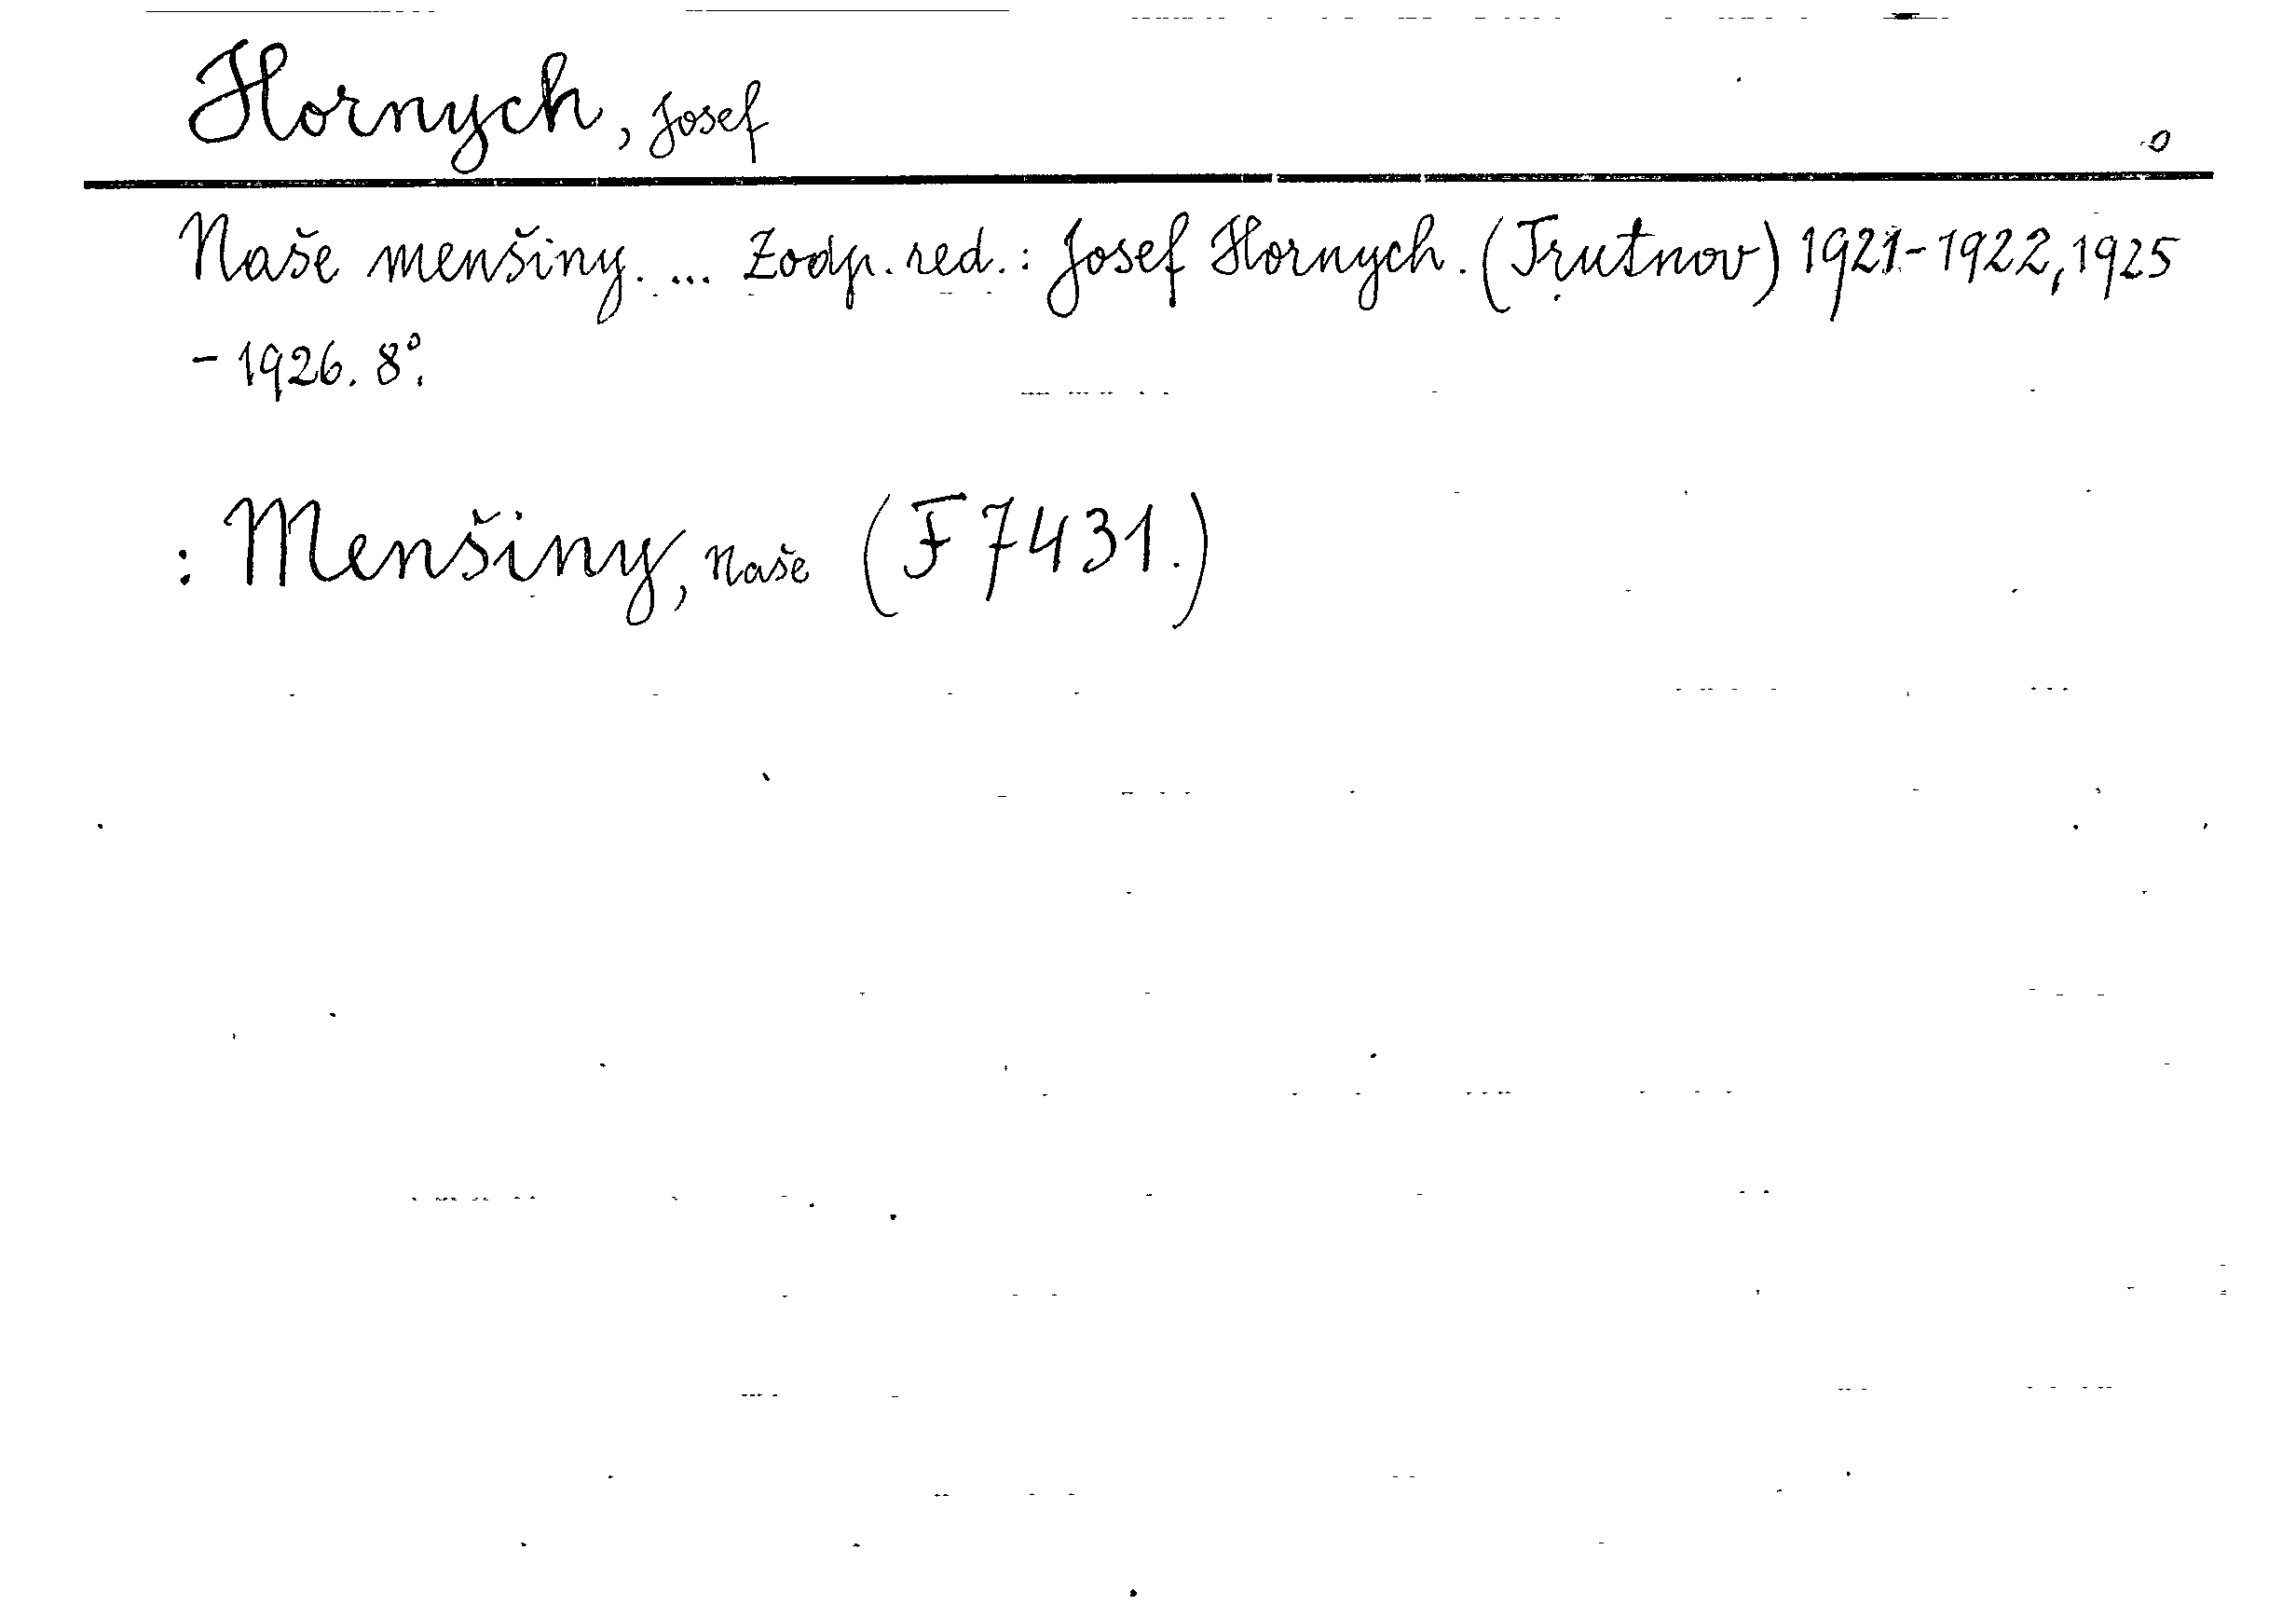 Hornych, Josef
o
Naše menšiny. ... Zodp. red.: Josef Hornych. (Trutnov) 1921-1922, 1925
- 1926. 8°.
: Menšiny, Naše (F 7431.)